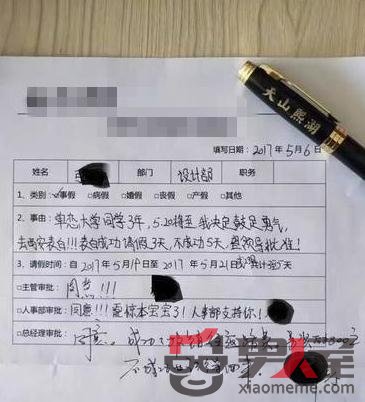 天山熙湖
填写日期：2017年5月6日
姓名 部门 设计部 职务
1. 类别：☑事假 □病假 □婚假 □丧假 □产假 □其他
2. 事由：单恋大学同学3年，5.20将至我决定鼓足勇气，
去西安表白!!!表白成功请假3天，不成功5天，恳领导批准!
3. 请假时间：自2017年5月19日至2017年5月21日 共计 5天
□主管审批： 同意!!!
□人事部审批：同意!!! 要惊本宝宝了！人事部支持你！
□总经理审批： 同意。成功
不成
xiaomeme.com